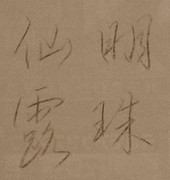 明珠
仙露